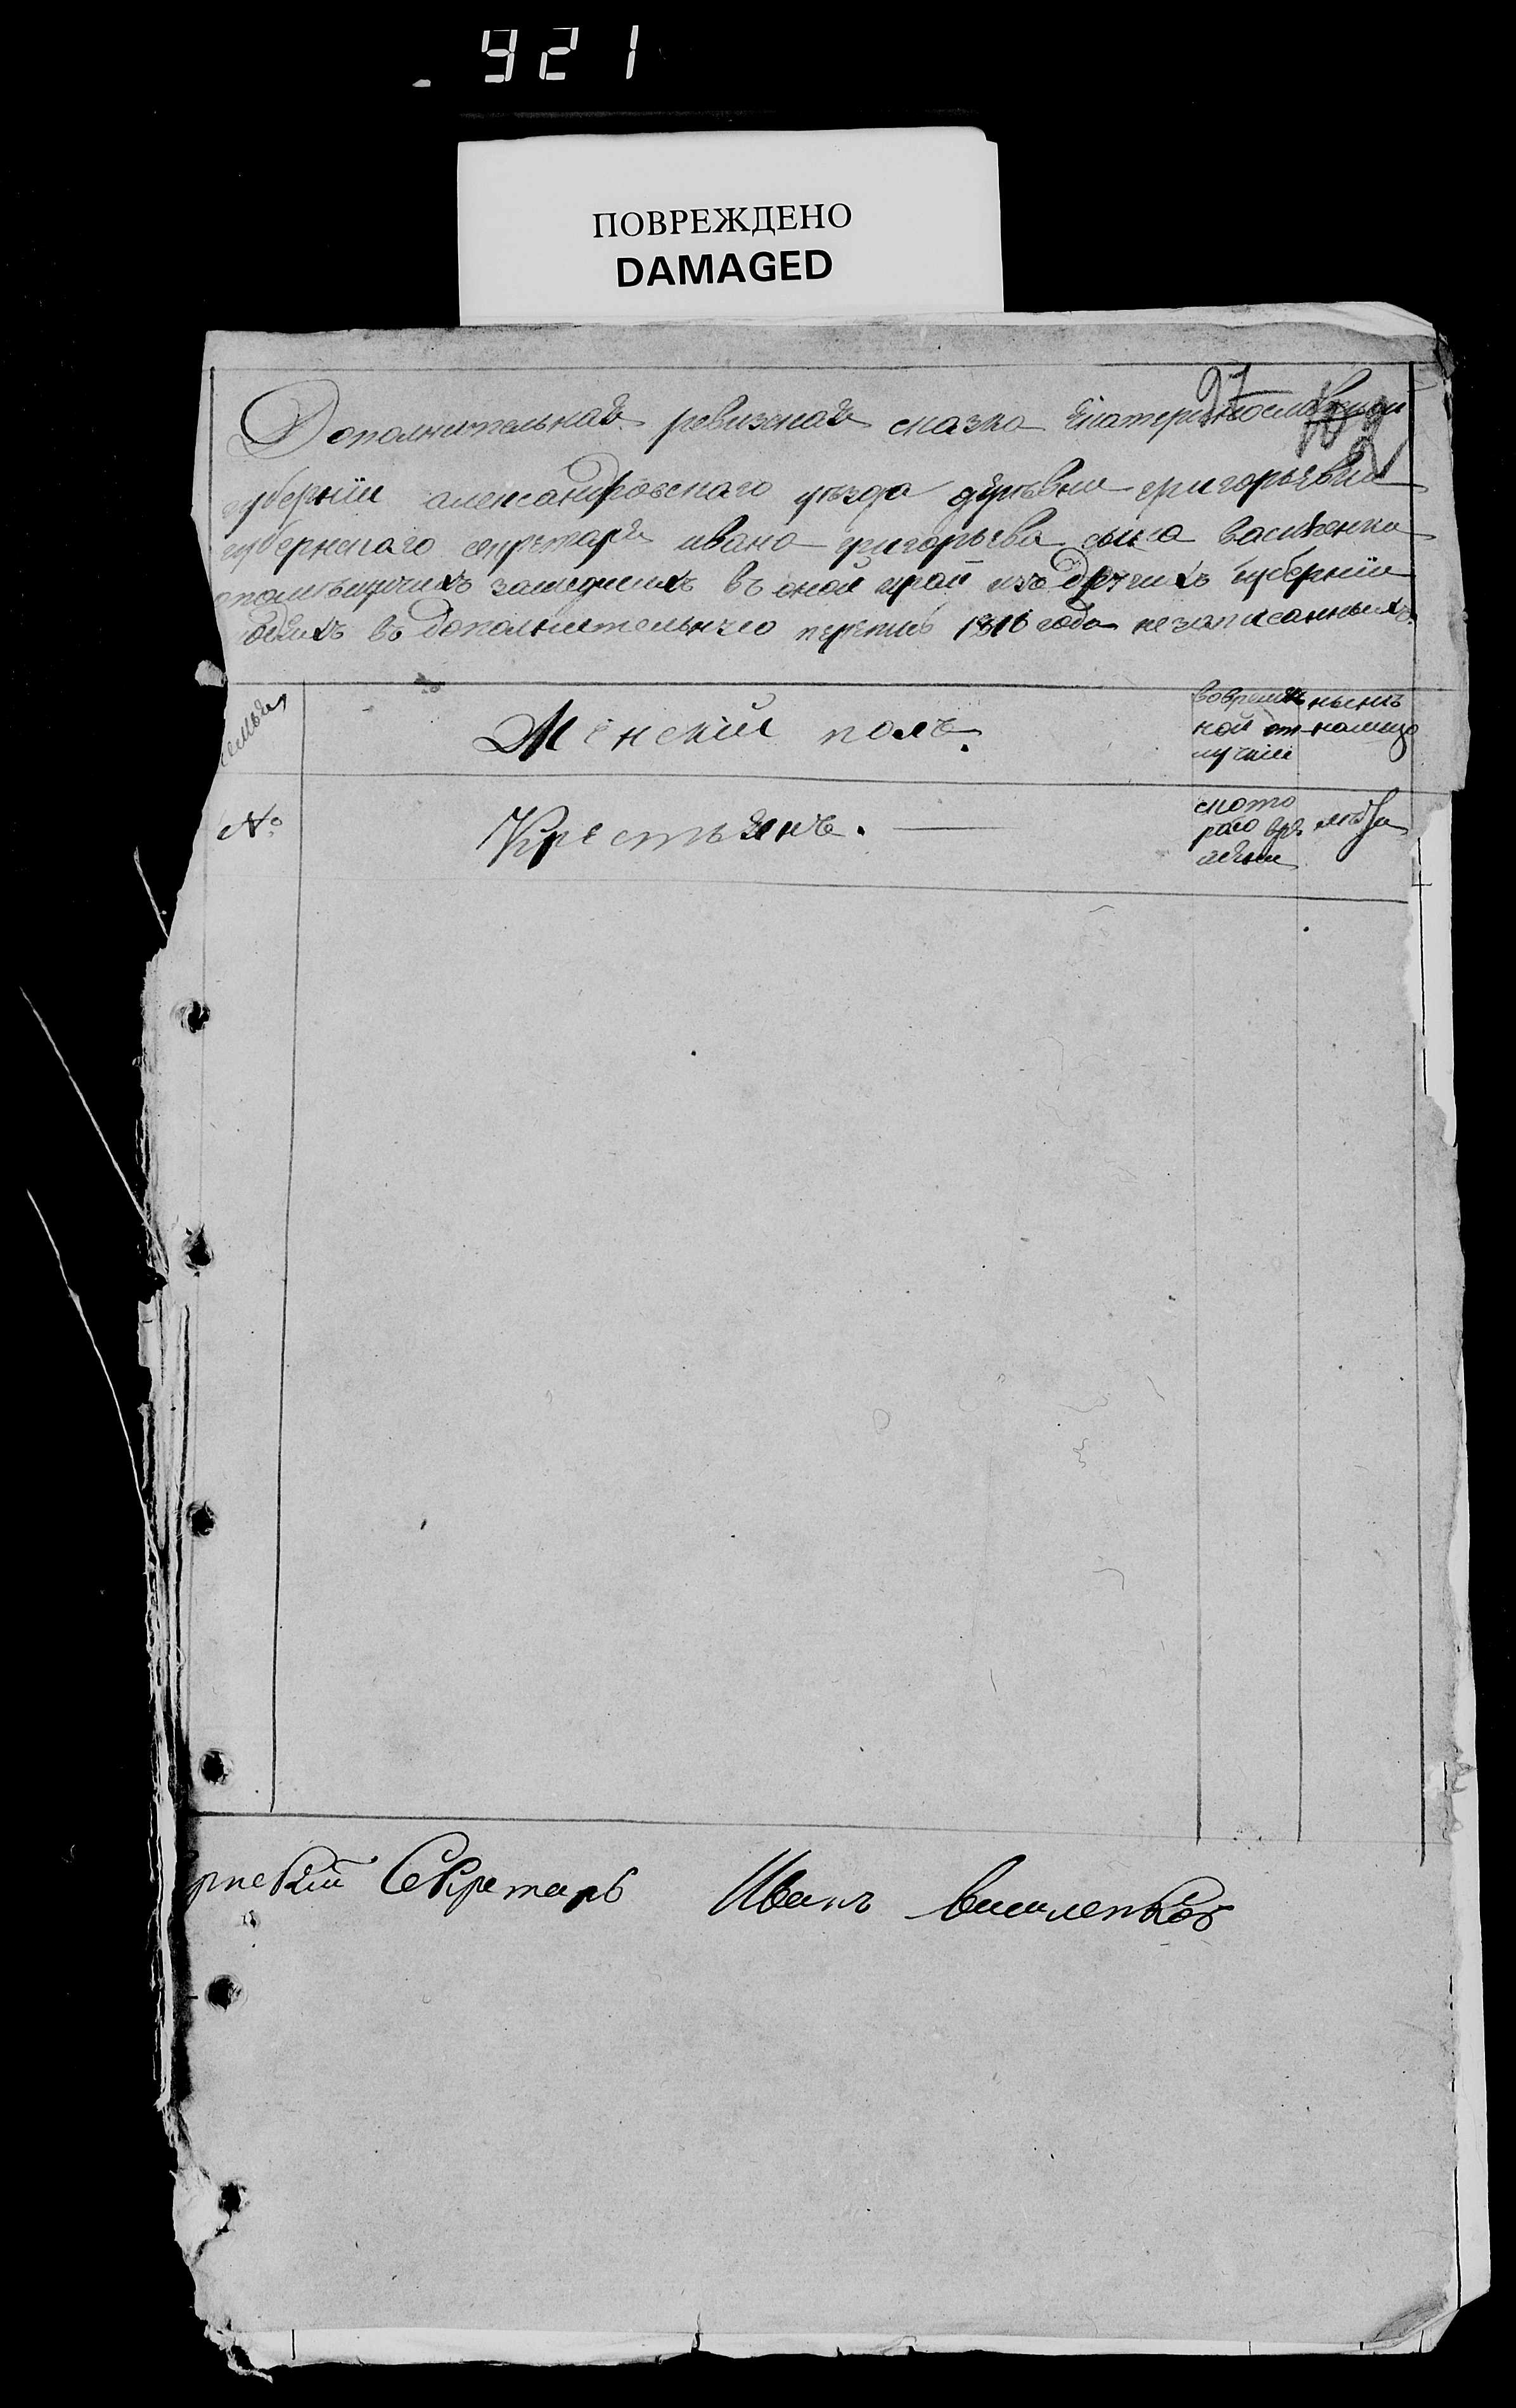 921
ПОВРЕЖДЕНО
DAMAGED
97
102
Дополнительная ревизская сказка Екатеринославской
губернiи александровскаго уезда деревни григорьевки
губернскаго секретаря ивана григорьева сына василенка
опомещичихъ зашедшихъ въ оной край изъ другихъ губернiи
въ дополнительную перепись 1816 года незаписанныхъ.
семья
Женскiй полъ.
вовременной отлучкии
ныне налицо
№
Крестьянъ.
скоторого времени
лета
рнскiй Секретарь Иванъ василенковъ